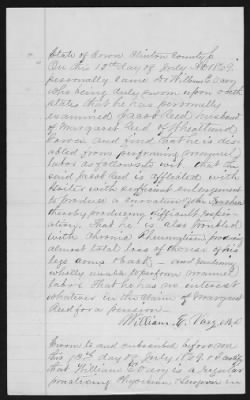 State of Iowa Clinton County ss
On this 12th day of July AD 1889
personally came Dr William E.
who being duly sworn upon oath
states that he has personally
examined Jacob Reed husband
of Margaret Reed of Wheatland
Iowa and find that he is dis
abled from performing manual
labor as follows to wit that the
said Jacob Reed is afflicted with
Goiter with sufficient enlargement
to produce a curvature of the Trachea
thereby producing difficult respir
atory. That he is also troubled
with chronic Rheumatism producing
almost total loss of the use of his
legs arms & back - and rendering
wholly unable to perform manual
labor That he has no interest
whatever in the claim of Margaret
Reed for a pension
William E.
Sworn to and subscribed before me
this 12th day of July 1889 &
that William E. is a regular
practicing Physician & Surgeon in